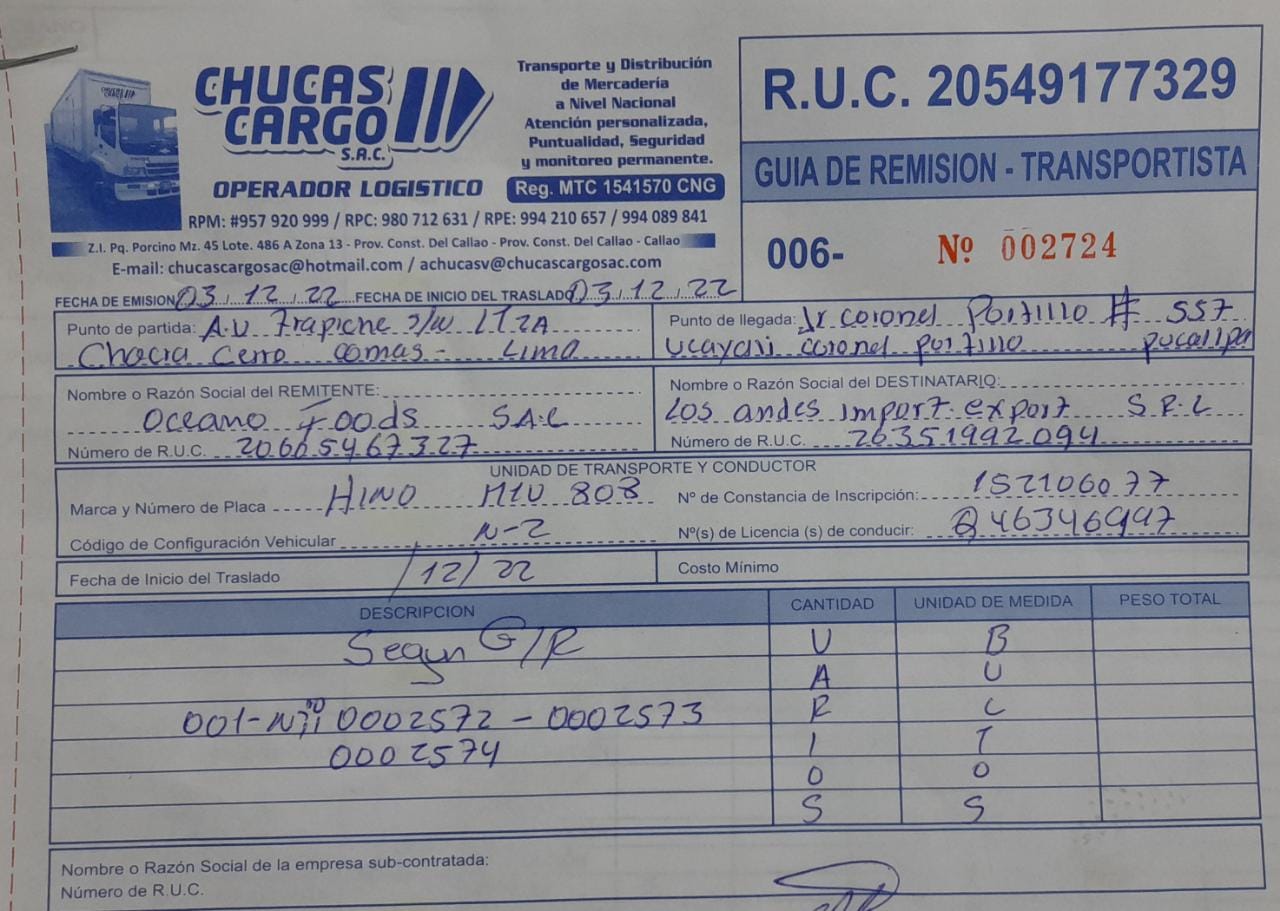 CHUCAS CARGO S.A.C.
OPERADOR LOGISTICO
Transporte y Distribución
de Mercadería
a Nivel Nacional
Atención personalizada,
Puntualidad, Seguridad
y monitoreo permanente.
Reg. MTC 1541570 CNG
RPM: #957 920 999 / RPC: 980 712 631 / RPE: 994 210 657 / 994 089 841
Z.I. Pq. Porcino Mz. 45 Lote. 486 A Zona 13 - Prov. Const. Del Callao - Prov. Const. Del Callao - Callao
E-mail: chucascargosac@hotmail.com / achucasv@chucascargosac.com
R.U.C. 20549177329
GUIA DE REMISION - TRANSPORTISTA
006- Nº 002724
FECHA DE EMISION 03/12/22 FECHA DE INICIO DEL TRASLADO 03/12/22
Punto de partida: A.V Trapiche S/N LT2A
Chacra Cerro comas - Lima
Punto de llegada: Jr coronel Portillo # 557
Ucayali coronel portillo pucallpa
Nombre o Razón Social del REMITENTE:
Oceano Foods S.A.C
Número de R.U.C.
Nombre o Razón Social del DESTINATARIO:
Los andes import. export S.R.L
Número de R.U.C. 26351992094
UNIDAD DE TRANSPORTE Y CONDUCTOR
Marca y Número de Placa HINO 808
Nº de Constancia de Inscripción: 152106077
Código de Configuración Vehicular N-2
Nº(s) de Licencia (s) de conducir: Q46346997
Fecha de Inicio del Traslado /12/22
Costo Mínimo
DESCRIPCION CANTIDAD UNIDAD DE MEDIDA PESO TOTAL
Segun G/R U B
A U
001- 0002572 - 0002573 R L
0002574 I T
O O
S S
Nombre o Razón Social de la empresa sub-contratada:
Número de R.U.C.